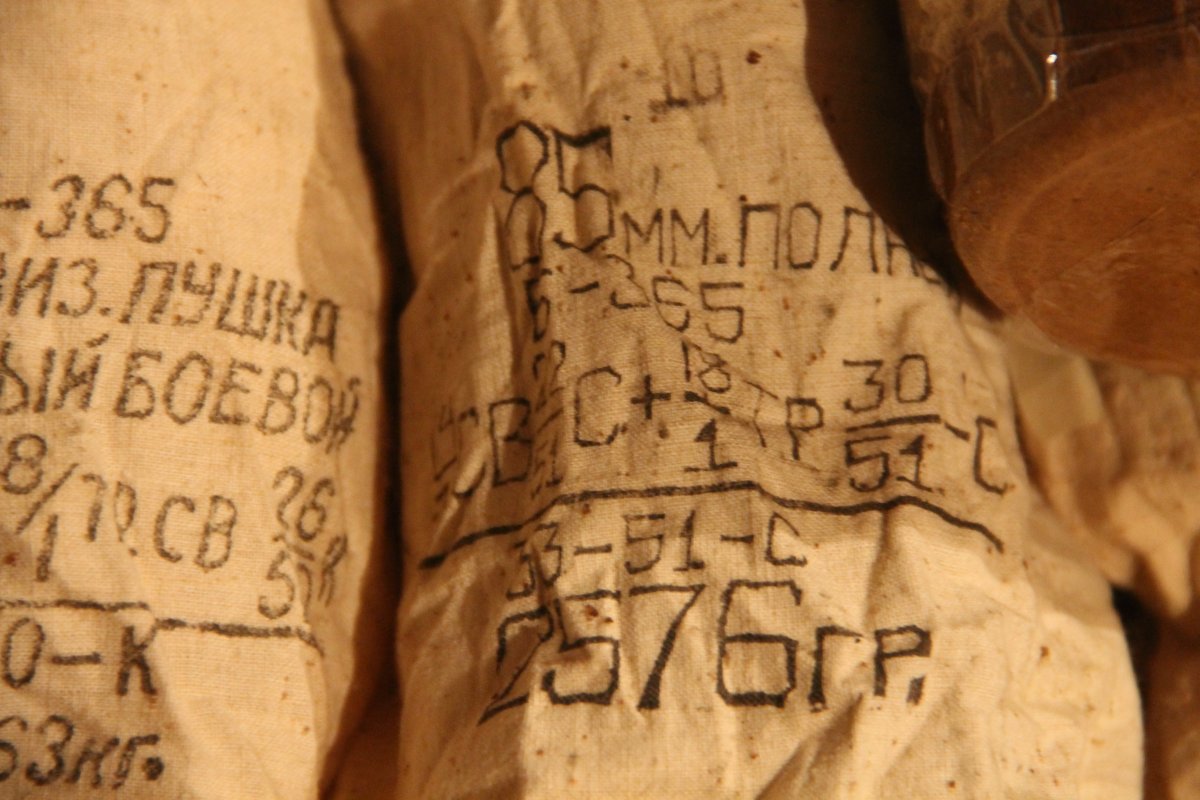 -365
ИЗ. ПУШКА
ЫЙ БОЕВОЙ
18/1 ТР. СВ 26/51 R
0-К
63 кг.
85 мм. ПОЛН
Б-365
С + 18/1 ТР 30/51-С
33-51-С
2576 гр.